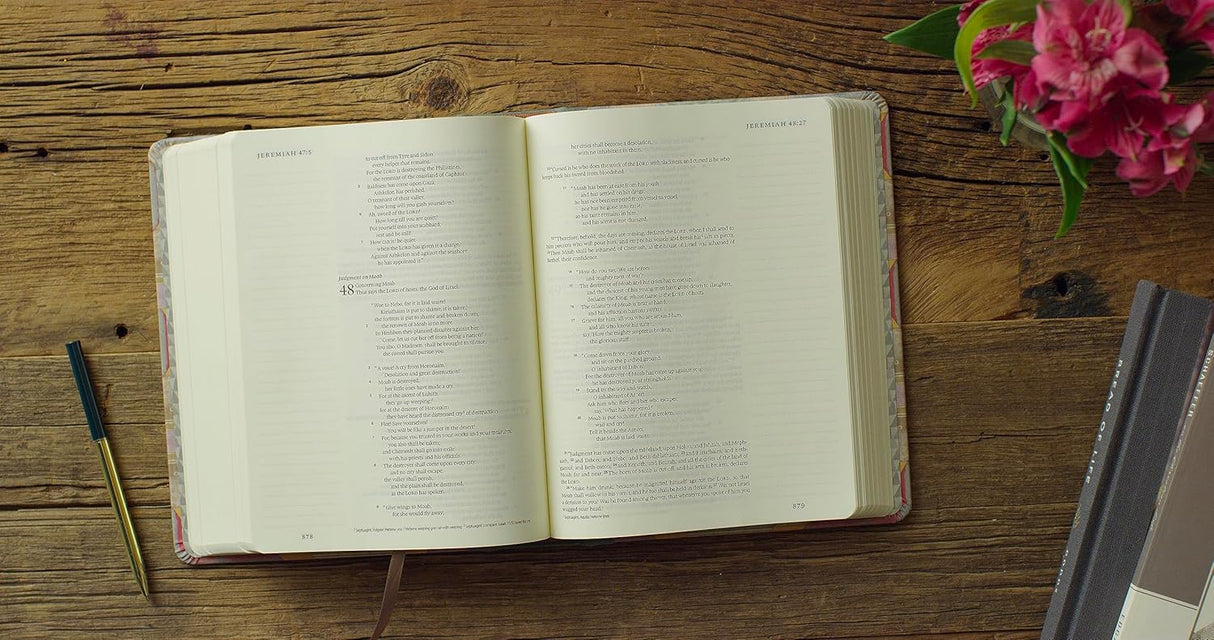 JEREMIAH 47:5
to cut off from Tyre and Sidon
every helper that remains.
For the LORD is destroying the Philistines,
the remnant of the coastland of Caphtor.
5 Baldness has come upon Gaza;
Ashkelon has perished.
O remnant of their valley,
how long will you gash yourselves?
6 Ah, sword of the LORD!
How long till you are quiet?
Put yourself into your scabbard;
rest and be still!
7 How can it be quiet
when the LORD has given it a charge?
Against Ashkelon and against the seashore
he has appointed it."
Judgment on Moab
48 Concerning Moab.
Thus says the LORD of hosts, the God of Israel:
"Woe to Nebo, for it is laid waste!
Kiriathaim is put to shame, it is taken;
the fortress is put to shame and broken down;
2 the renown of Moab is no more.
In Heshbon they planned disaster against her:
'Come, let us cut her off from being a nation!'
You also, O Madmen, shall be brought to silence;
the sword shall pursue you.
3 "A voice! A cry from Horonaim,
'Desolation and great destruction!'
4 Moab is destroyed;
her little ones have made a cry.
5 For at the ascent of Luhith
they go up weeping;
for at the descent of Horonaim
they have heard the distressed cry of destruction.
6 Flee! Save yourselves!
You will be like a juniper in the desert!
7 For, because you trusted in your works and your treasures,
you also shall be taken;
and Chemosh shall go into exile
with his priests and his officials.
8 The destroyer shall come upon every city,
and no city shall escape;
the valley shall perish,
and the plain shall be destroyed,
as the LORD has spoken.
9 "Give wings to Moab,
for she would fly away;
878
JEREMIAH 48:27
her cities shall become a desolation,
with no inhabitant in them.
10 "Cursed is he who does the work of the LORD with slackness, and cursed is he who
keeps back his sword from bloodshed.
11 "Moab has been at ease from his youth
and has settled on his dregs;
he has not been emptied from vessel to vessel,
nor has he gone into exile;
so his taste remains in him,
and his scent is not changed.
12 "Therefore, behold, the days are coming, declares the LORD, when I shall send to
him pourers who will pour him, and empty his vessels and break his jars in pieces.
13 Then Moab shall be ashamed of Chemosh, as the house of Israel was ashamed of
Bethel, their confidence.
14 "How do you say, 'We are heroes
and mighty men of war'?
15 The destroyer of Moab and his cities has come up,
and the choicest of his young men have gone down to slaughter,
declares the King, whose name is the LORD of hosts.
16 The calamity of Moab is near at hand,
and his affliction hastens swiftly.
17 Grieve for him, all you who are around him,
and all who know his name;
say, 'How the mighty scepter is broken,
the glorious staff.'
18 "Come down from your glory,
and sit on the parched ground,
O inhabitant of Dibon!
For the destroyer of Moab has come up against you;
he has destroyed your strongholds.
19 Stand by the way and watch,
O inhabitant of Aroer!
Ask him who flees and her who escapes;
say, 'What has happened?'
20 Moab is put to shame, for it is broken;
wail and cry!
Tell it beside the Arnon,
that Moab is laid waste.
21 "Judgment has come upon the tableland, upon Holon, and Jahzah, and Meph-
aath, 22 and Dibon, and Nebo, and Beth-diblathaim, 23 and Kiriathaim, and Beth-
gamul, and Beth-meon, 24 and Kerioth, and Bozrah, and all the cities of the land of
Moab, far and near. 25 The horn of Moab is cut off, and his arm is broken, declares
the LORD.
26 "Make him drunk, because he magnified himself against the LORD, so that
Moab shall wallow in his vomit, and he too shall be held in derision. 27 Was not Israel
a derision to you? Was he found among thieves, that whenever you spoke of him you
wagged your head?
879
BREAD OF LIFE
SCHAEFFER